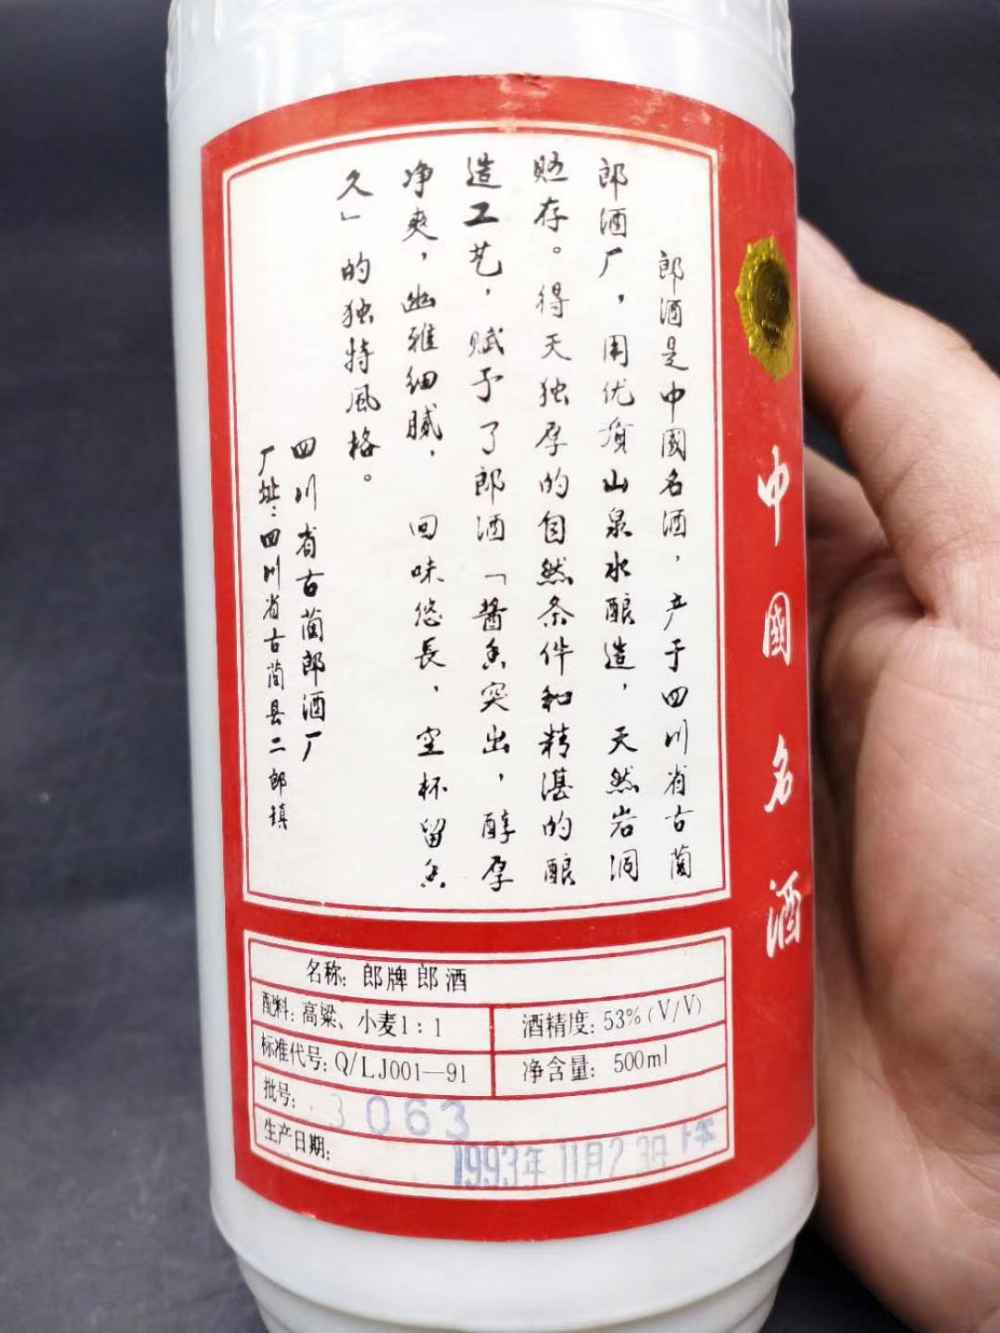 郎酒是中國名酒，产于四川省古蔺
郎酒厂，用优质山泉水酿造，天然岩洞
贮存。得天独厚的自然条件和精湛的酿
造工艺，赋予了郎酒「酱香突出，醇厚
净爽，幽雅细腻，回味悠長，空杯留香
久」的独特風格。
四川省古蔺郎酒厂
厂址：四川省古蔺县二郎镇
中國名酒
名称：郎牌郎酒
配料：高粱、小麦1：1
酒精度：53%(V/V)
标准代号：Q/LJ001—91
净含量：500ml
批号：3063
生产日期：1993年11月23日